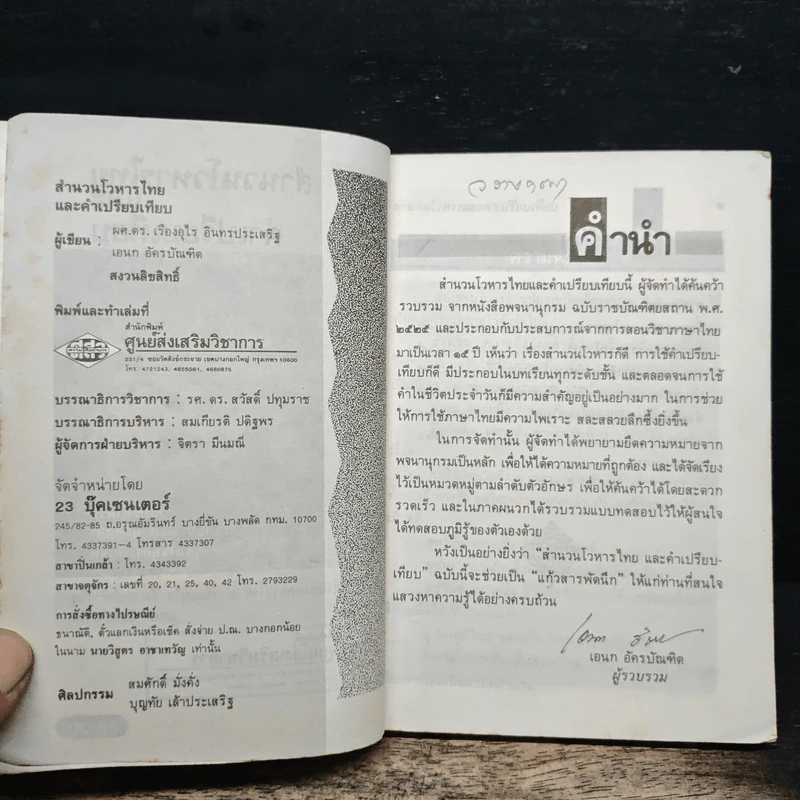 สำนวนโวหารไทย
และคำเปรียบเทียบ
ผู้เขียน : ผศ.ดร. เรืองอุไร อินทรประเสริฐ
เอนก อัครบัณฑิต
สงวนลิขสิทธิ์
พิมพ์และทำเล่มที่
สำนักพิมพ์
ศูนย์ส่งเสริมวิชาการ
231/4 ซอยวัดสังข์กระจาย เขตบางกอกใหญ่ กรุงเทพฯ 10600
โทร. 4721243, 4655061, 4660875
บรรณาธิการวิชาการ : รศ. ดร. สวัสดิ์ ปทุมราช
บรรณาธิการบริหาร : สมเกียรติ ปดิฐพร
ผู้จัดการฝ่ายบริหาร : จิตรา มีนมณี
จัดจำหน่ายโดย
23 บุ๊คเซนเตอร์
245/82-85 ถ.อรุณอัมรินทร์ บางยี่ขัน บางพลัด กทม. 10700
โทร. 4337391-4 โทรสาร 4337307
สาขาปิ่นเกล้า : โทร. 4343392
สาขาจตุจักร : เลขที่ 20, 21, 25, 40, 42 โทร. 2793229
การสั่งซื้อทางไปรษณีย์
ธนาณัติ, ตั๋วแลกเงินหรือเช็ค สั่งจ่าย ป.ณ. บางกอกน้อย
ในนาม นายวิสูตร อาชาเทวัญ เท่านั้น
ศิลปกรรม สมศักดิ์ มั่งคั่ง
บุญทัย เล้าประเสริฐ
คำนำ
สำนวนโวหารไทยและคำเปรียบเทียบนี้ ผู้จัดทำได้ค้นคว้า
รวบรวม จากหนังสือพจนานุกรม ฉบับราชบัณฑิตยสถาน พ.ศ.
๒๕๒๕ และประกอบกับประสบการณ์จากการสอนวิชาภาษาไทย
มาเป็นเวลา ๑๕ ปี เห็นว่า เรื่องสำนวนโวหารก็ดี การใช้คำเปรียบ-
เทียบก็ดี มีประกอบในบทเรียนทุกระดับชั้น และตลอดจนการใช้
คำในชีวิตประจำวันก็มีความสำคัญอยู่เป็นอย่างมาก ในการช่วย
ให้การใช้ภาษาไทยมีความไพเราะ สละสลวยลึกซึ้งยิ่งขึ้น
ในการจัดทำนั้น ผู้จัดทำได้พยายามยึดความหมายจาก
พจนานุกรมเป็นหลัก เพื่อให้ได้ความหมายที่ถูกต้อง และได้จัดเรียง
ไว้เป็นหมวดหมู่ตามลำดับตัวอักษร เพื่อให้ค้นคว้าได้โดยสะดวก
รวดเร็ว และในภาคผนวกได้รวบรวมแบบทดสอบไว้ให้ผู้สนใจ
ได้ทดสอบภูมิรู้ของตัวเองด้วย
หวังเป็นอย่างยิ่งว่า “สำนวนโวหารไทย และคำเปรียบ-
เทียบ” ฉบับนี้จะช่วยเป็น “แก้วสารพัดนึก” ให้แก่ท่านที่สนใจ
แสวงหาความรู้ได้อย่างครบถ้วน
เอนก อัครบัณฑิต
ผู้รวบรวม